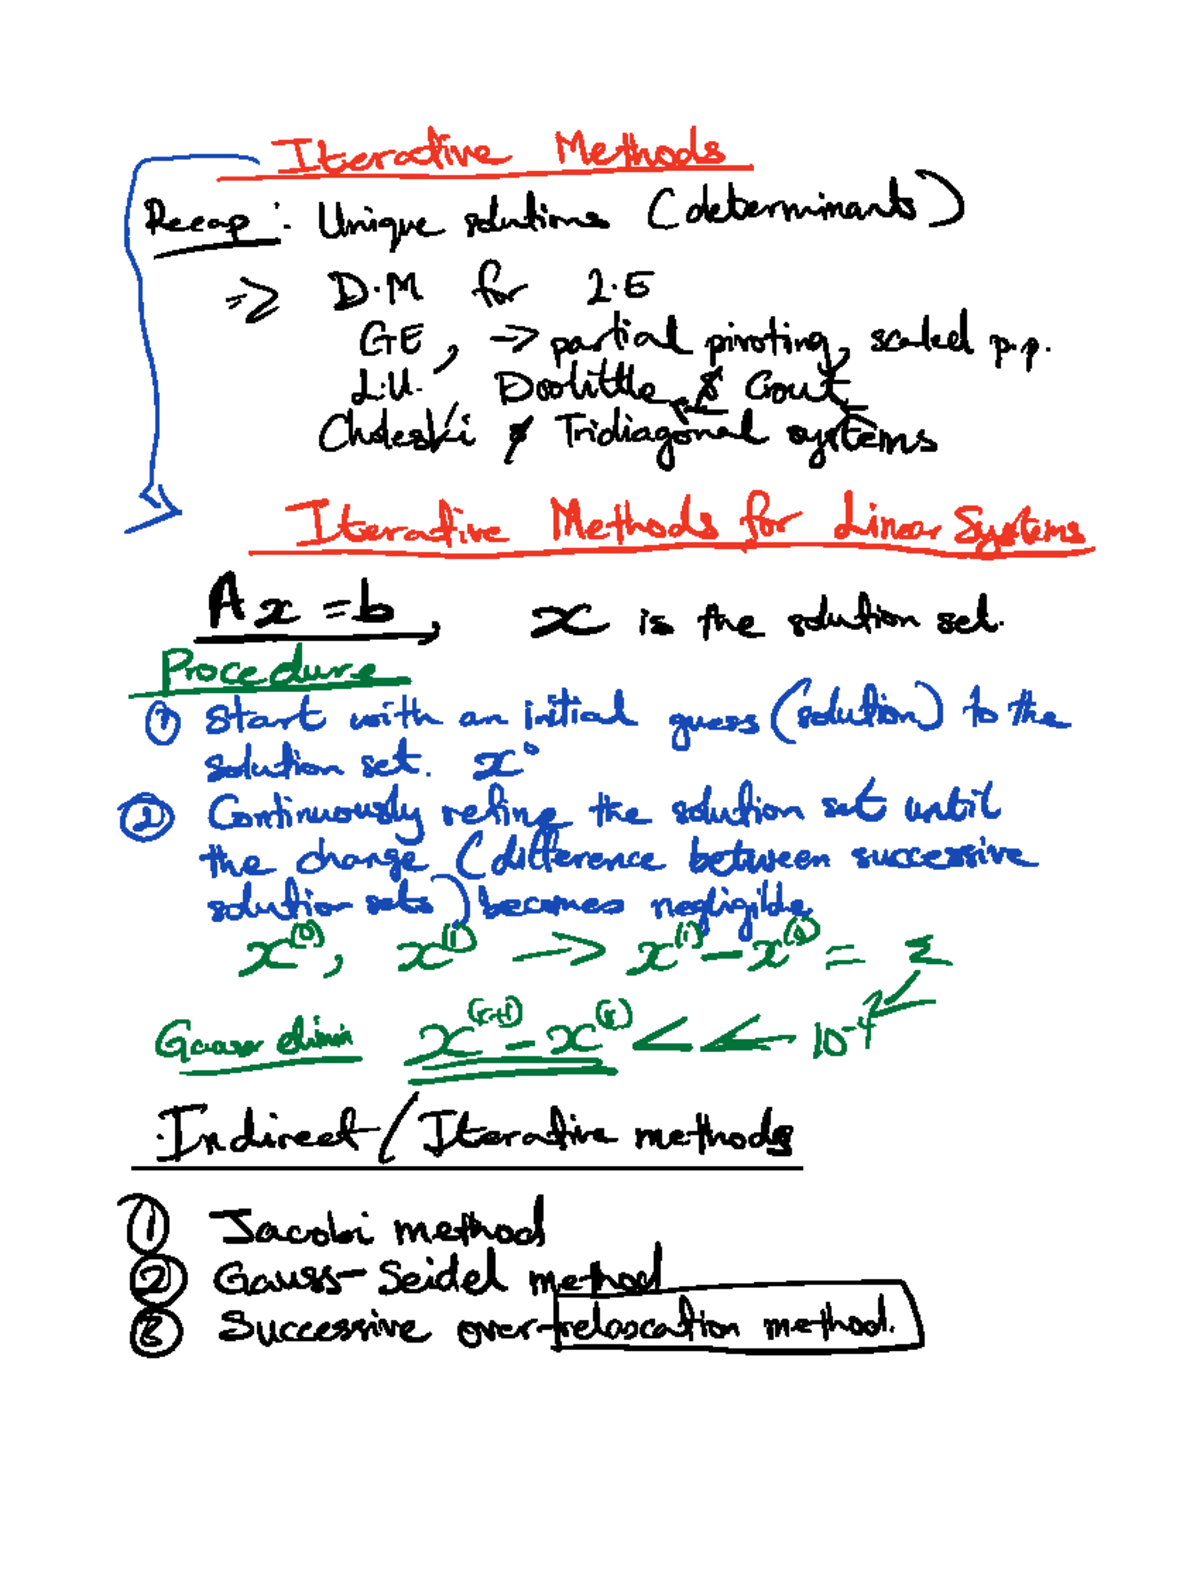 Iterative Methods
Recap: Unique solutions (determinants)
=> D.M for L.E
GE, -> partial pivoting, scaled p.p.
L.U. Doolittle & Crout
Choleski & Tridiagonal systems
Iterative Methods for Linear Systems
Ax = b, x is the solution set.
Procedure
① Start with an initial guess (solution) to the
solution set. x⁰
② Continuously refine the solution set until
the change (difference between successive
solution sets) becomes negligible
x⁽⁰⁾, x⁽¹⁾ -> x⁽¹⁾ - x⁽⁰⁾ =
Gauss elimin x⁽ᵏ⁺¹⁾ - x⁽ᵏ⁾ << 10⁻⁴
Indirect/Iterative methods
① Jacobi method
② Gauss-Seidel method
③ Successive over-relaxation method.